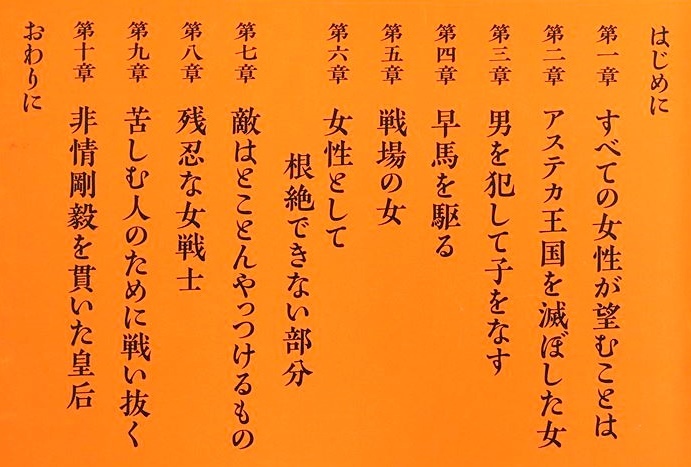 はじめに
第一章 すべての女性が望むことは
第二章 アステカ王国を滅ぼした女
第三章 男を犯して子をなす
第四章 早馬を駆る
第五章 戦場の女
第六章 女性として
根絶できない部分
第七章 敵はとことんやっつけるもの
第八章 残忍な女戦士
第九章 苦しむ人のために戦い抜く
第十章 非情剛毅を貫いた皇后
おわりに